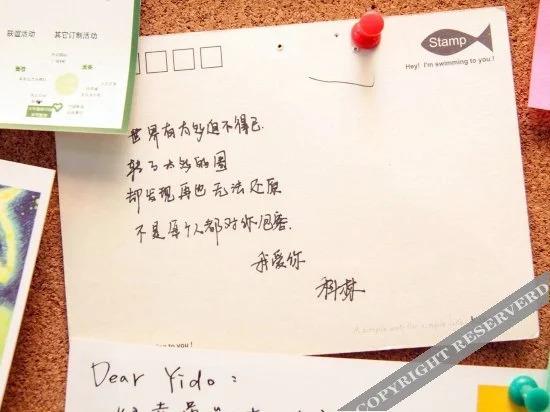 联谊活动 其它订制活动
Stamp
Hey! I'm swimming to you!
世界有太多迫不得已.
转了太多的圈
却发现再也无法还原
不是每个人都对你包容.
我爱你
A simple card for simple
to you!
Dear Yido:
COPYRIGHT RESERVED